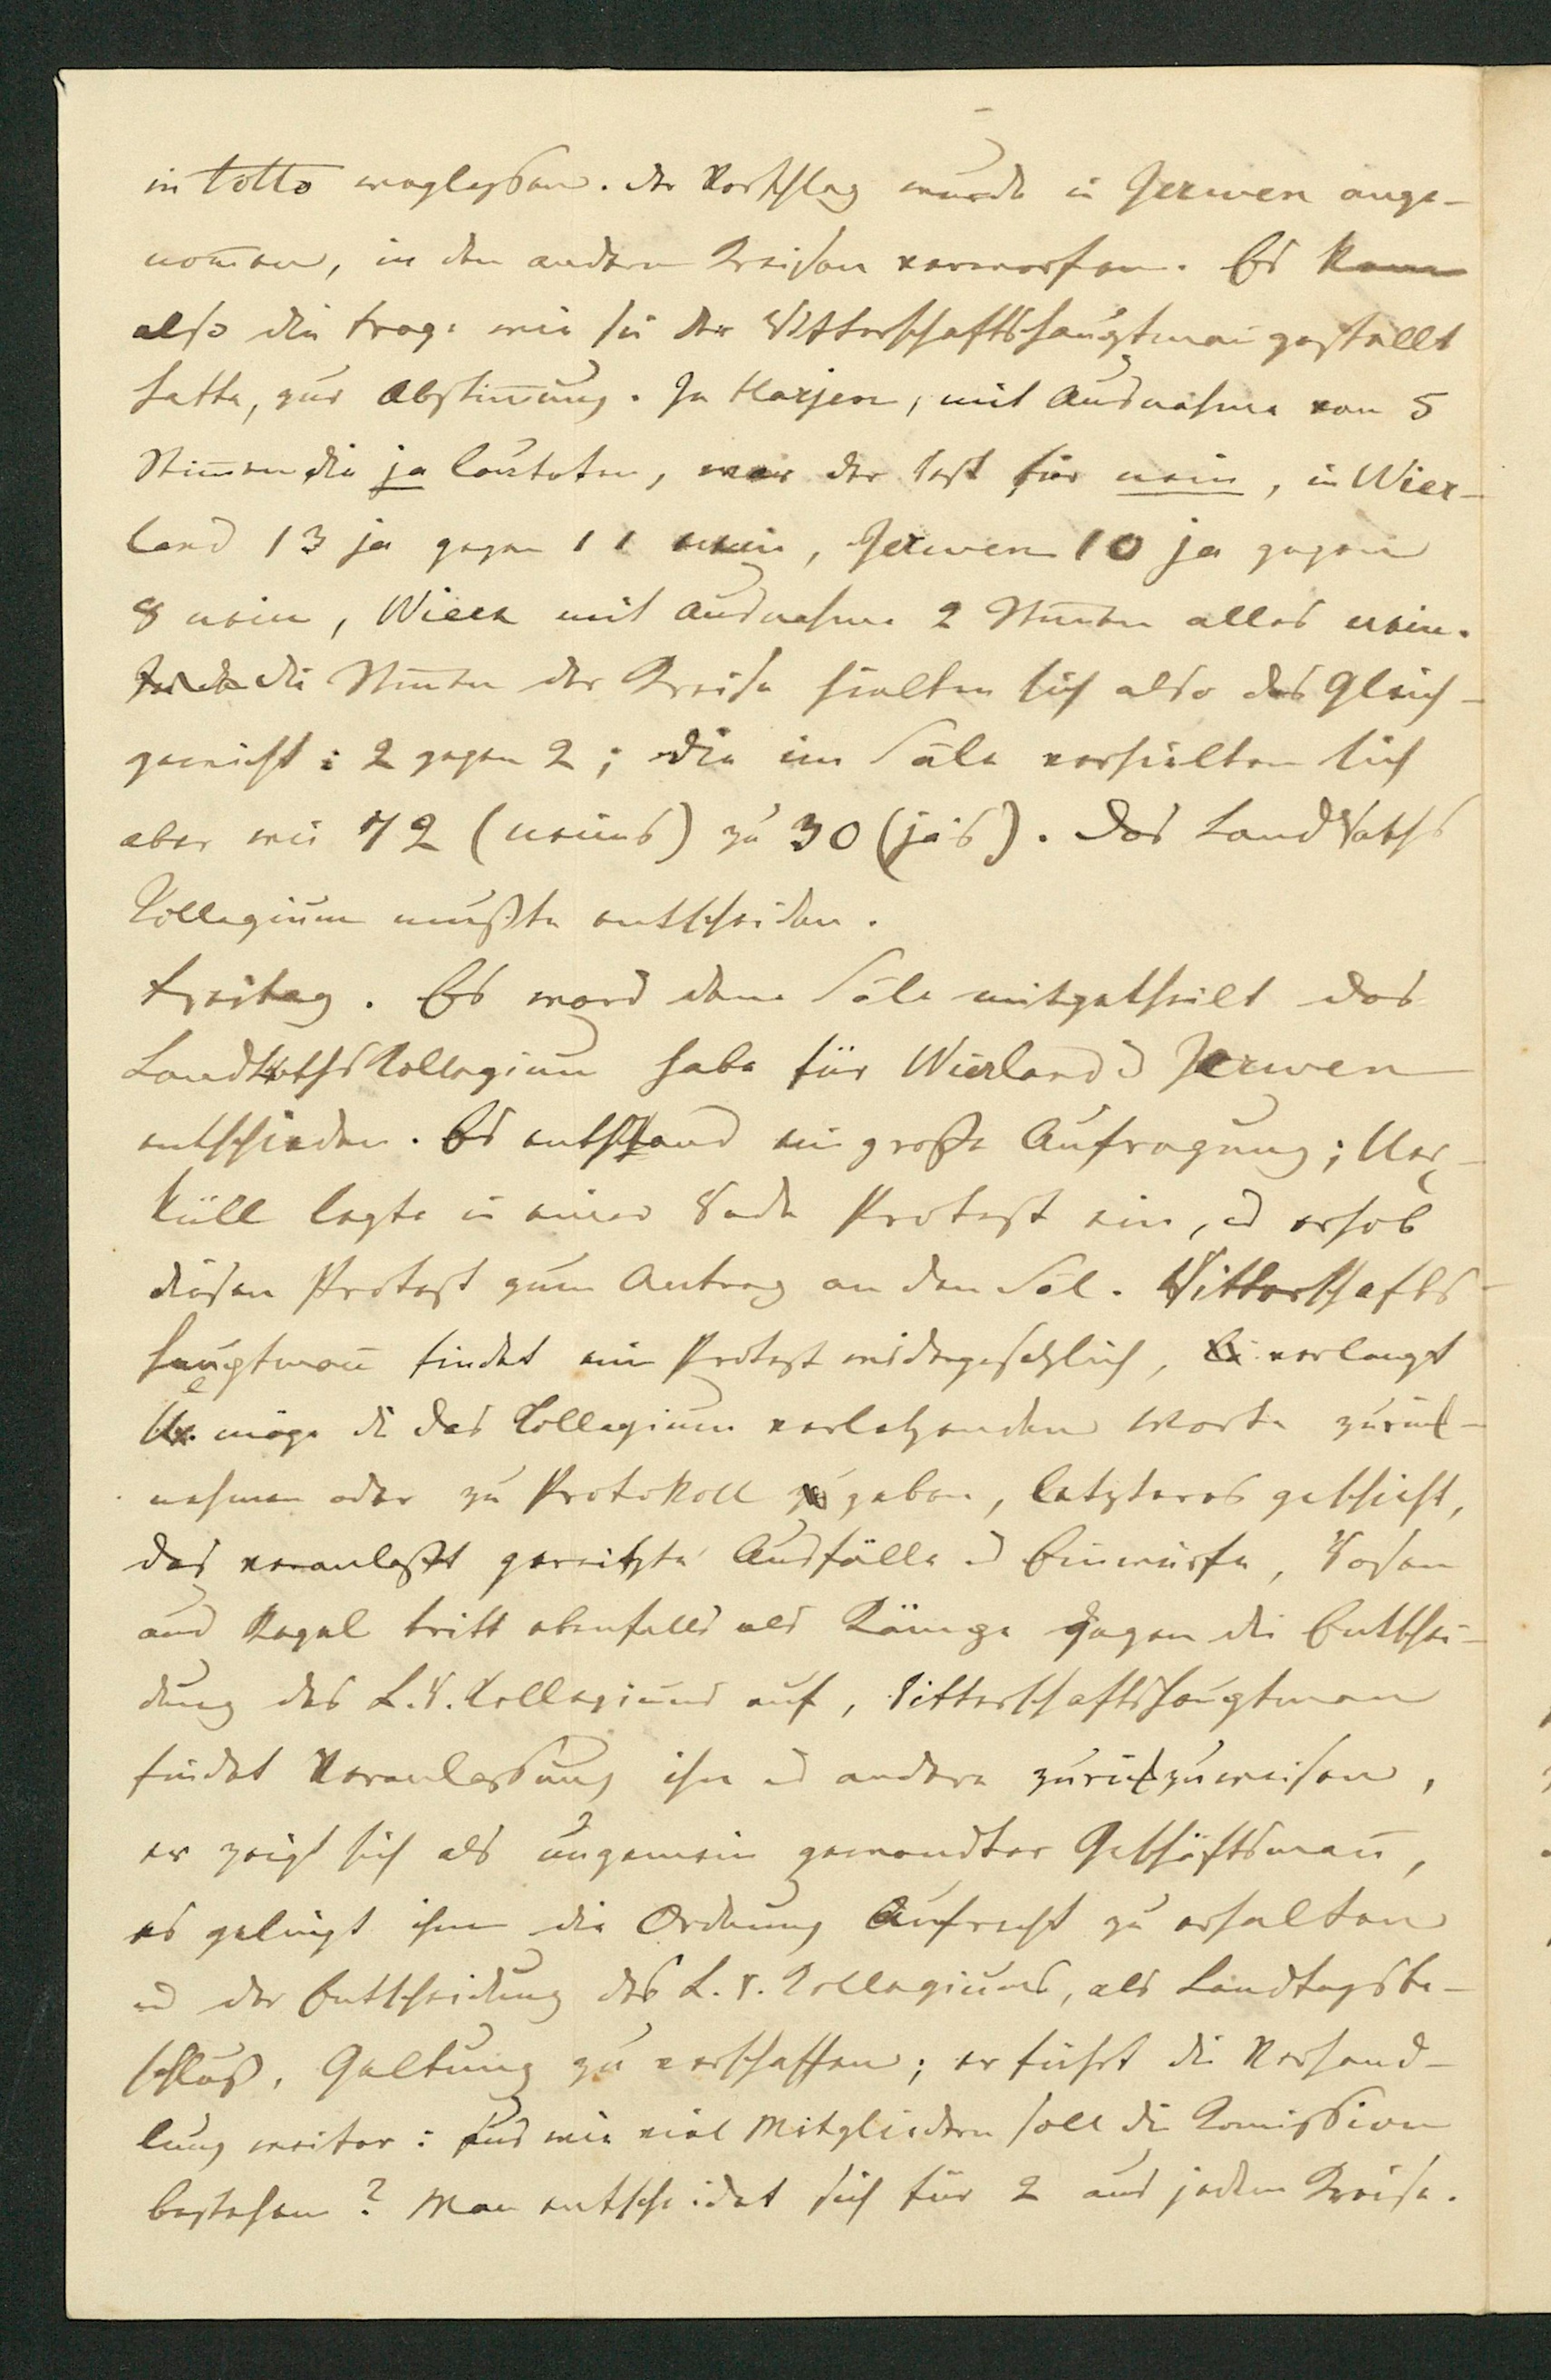 in totto weglassen. Der Vorschlag wurde in Jerwen ange-
nom̄en, in den andern Kreisen verworfen. Es kam
also die Frage wie sie der Ritterschaftshauptman̄ gestellt
hatte, zur Abstim̄ung. In Harjen, mit Ausnahme von 5
Stim̄en die ja lauteten, war der Rest für nein, in Wier-
land 13 ja gegen 11 nein, Jerwen 10 ja gegen
8 nein, Wieck mit Ausnahme 2 Stim̄en alles nein.
die Stim̄en der Kreise hielten sich also das Gleich-
gewicht: 2 gegen 2; die im Sale verhielten sich
aber wie 72 (neins) zu 30 (ja's). Das LandRaths
Collegium mußte entscheiden.
Freitag. Es ward dem Sale mitgetheilt das
LandRathsKollegium habe für Wierland u Jerwen
entschieden. Es entstand ein große Aufregung; Uex-
küll legte in einer Rede Protest ein, u erhob
diesen Protest zum Antrag an den Sal. Ritterschafts-
hauptman̄ findet ein Protest widergesetzlich, verlangt
Ue. möge di das Collegium verletzenden Worte zurück-
nehmen oder zu Protokoll geben, letzteres geschieht,
das veranlaßt gereitzte Ausfälle u Einwürfe, Rosen
aus Kegel tritt ebenfalls als Kämpe gegen die Entschei-
dung des L.R. Kollegiums auf, Ritterschaftshauptman
findet Veranlassung ihn u andere zurückzuweisen,
er zeigt sich als ungemein gewandter Geschäftsman̄,
es gelingt ihm die Ordnung Aufrecht zu erhalten
u der Entscheidung des L.R. Kollegiums, als Landtagsbe-
schluß, Geltung zu verschaffen; er führt die Verhand-
lung weiter: Aus wie viel Mitgliedern soll die Kom̄ission
bestehen? Man entscheidet sich für 2 aus jedem Kreise.